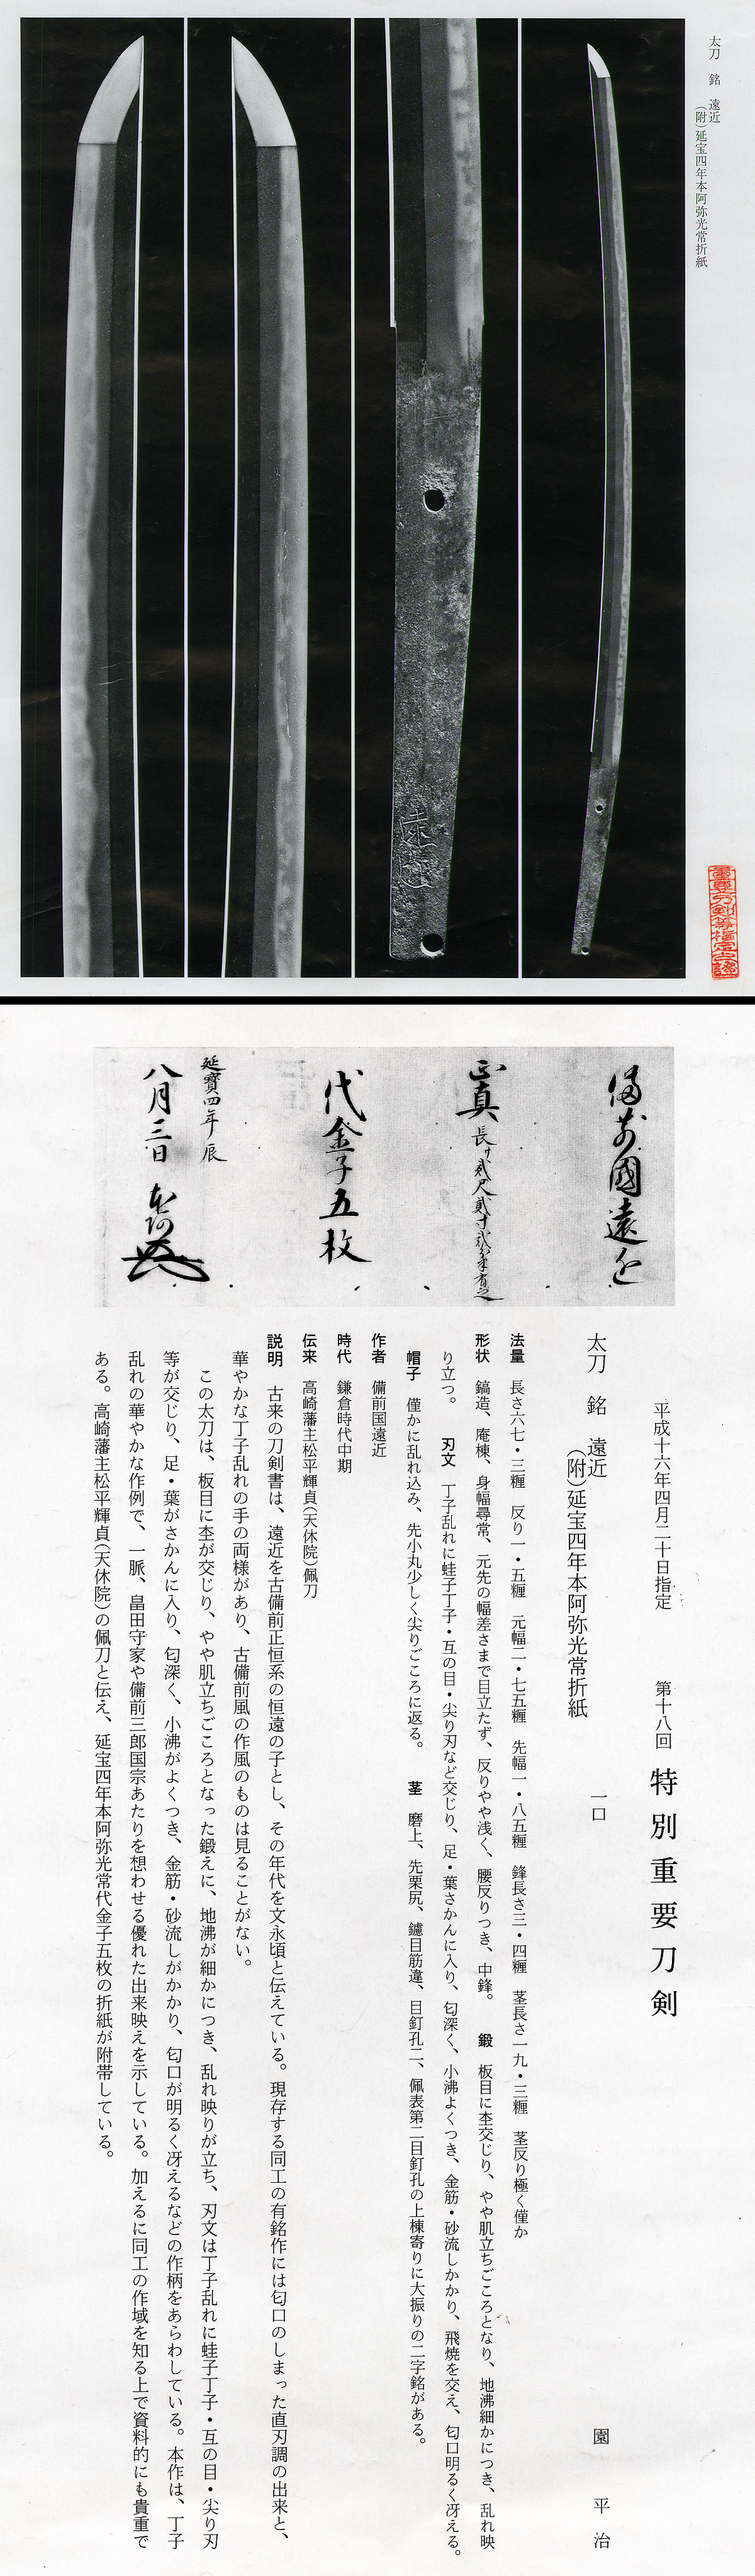 太刀　銘　遠近
（附）延宝四年本阿弥光常折紙
遠近
備前國遠近
正真 長サ貳尺貳寸貳分半有之
代金子五枚
延寶四年辰
八月三日 本阿
平成十六年四月二十日指定　第十八回　特別重要刀剣
太刀　銘　遠近　一口　園　平　治
（附）延宝四年本阿弥光常折紙
法量　長さ六七・三糎　反り一・五糎　元幅二・七五糎　先幅一・八五糎　鋒長さ三・四糎　茎長さ一九・三糎　茎反り極く僅か
形状　鎬造、庵棟、身幅尋常、元先の幅差さまで目立たず、反りやや浅く、腰反りつき、中鋒。　鍛　板目に杢交じり、やや肌立ちごころとなり、地沸細かにつき、乱れ映
り立つ。　刃文　丁子乱れに蛙子丁子・互の目・尖り刃など交じり、足・葉さかんに入り、匂深く、小沸よくつき、金筋・砂流しかかり、飛焼を交え、匂口明るく冴える。
帽子　僅かに乱れ込み、先小丸少しく尖りごころに返る。　茎　磨上、先栗尻、鑢目筋違、目釘孔二、佩表第二目釘孔の上棟寄りに大振りの二字銘がある。
作者　備前国遠近
時代　鎌倉時代中期
伝来　高崎藩主松平輝貞（天休院）佩刀
説明　古来の刀剣書は、遠近を古備前正恒系の恒遠の子とし、その年代を文永頃と伝えている。現存する同工の有銘作には匂口のしまった直刃調の出来と、
華やかな丁子乱れの手の両様があり、古備前風の作風のものは見ることがない。
この太刀は、板目に杢が交じり、やや肌立ちごころとなった鍛えに、地沸が細かにつき、乱れ映りが立ち、刃文は丁子乱れに蛙子丁子・互の目・尖り刃
等が交じり、足・葉がさかんに入り、匂深く、小沸がよくつき、金筋・砂流しがかかり、匂口が明るく冴えるなどの作柄をあらわしている。本作は、丁子
乱れの華やかな作例で、一脈、畠田守家や備前三郎国宗あたりを想わせる優れた出来映えを示している。加えるに同工の作域を知る上で資料的にも貴重で
ある。高崎藩主松平輝貞（天休院）の佩刀と伝え、延宝四年本阿弥光常代金子五枚の折紙が附帯している。